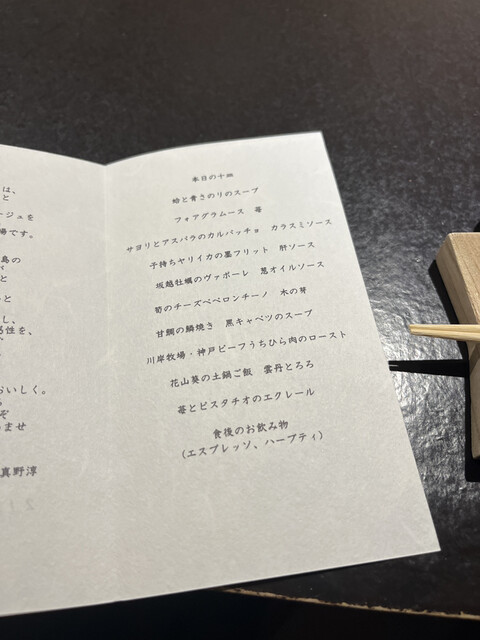 は、
と
ージュを
場です。
島の
が
と
いと
し、
る性を、
おいしく。
ぞ
ませ
真野淳
本日の十皿
蛤と青さのりのスープ
フォアグラムース　苺
サヨリとアスパラのカルパッチョ　カラスミソース
子持ちヤリイカの墨フリット　肝ソース
坂越牡蠣のヴァポーレ　葱オイルソース
筍のチーズペペロンチーノ　木の芽
甘鯛の鱗焼き　黒キャベツのスープ
川岸牧場・神戸ビーフうちひら肉のロースト
花山葵の土鍋ご飯　雲丹とろろ
苺とピスタチオのエクレール
食後のお飲み物
(エスプレッソ、ハーブティ)